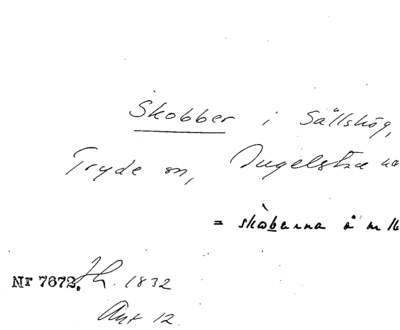 Skobber i Sällshög,
Tryde sn, Ingelsta
= skobarna å m 16
Nr 7672. 1832
12